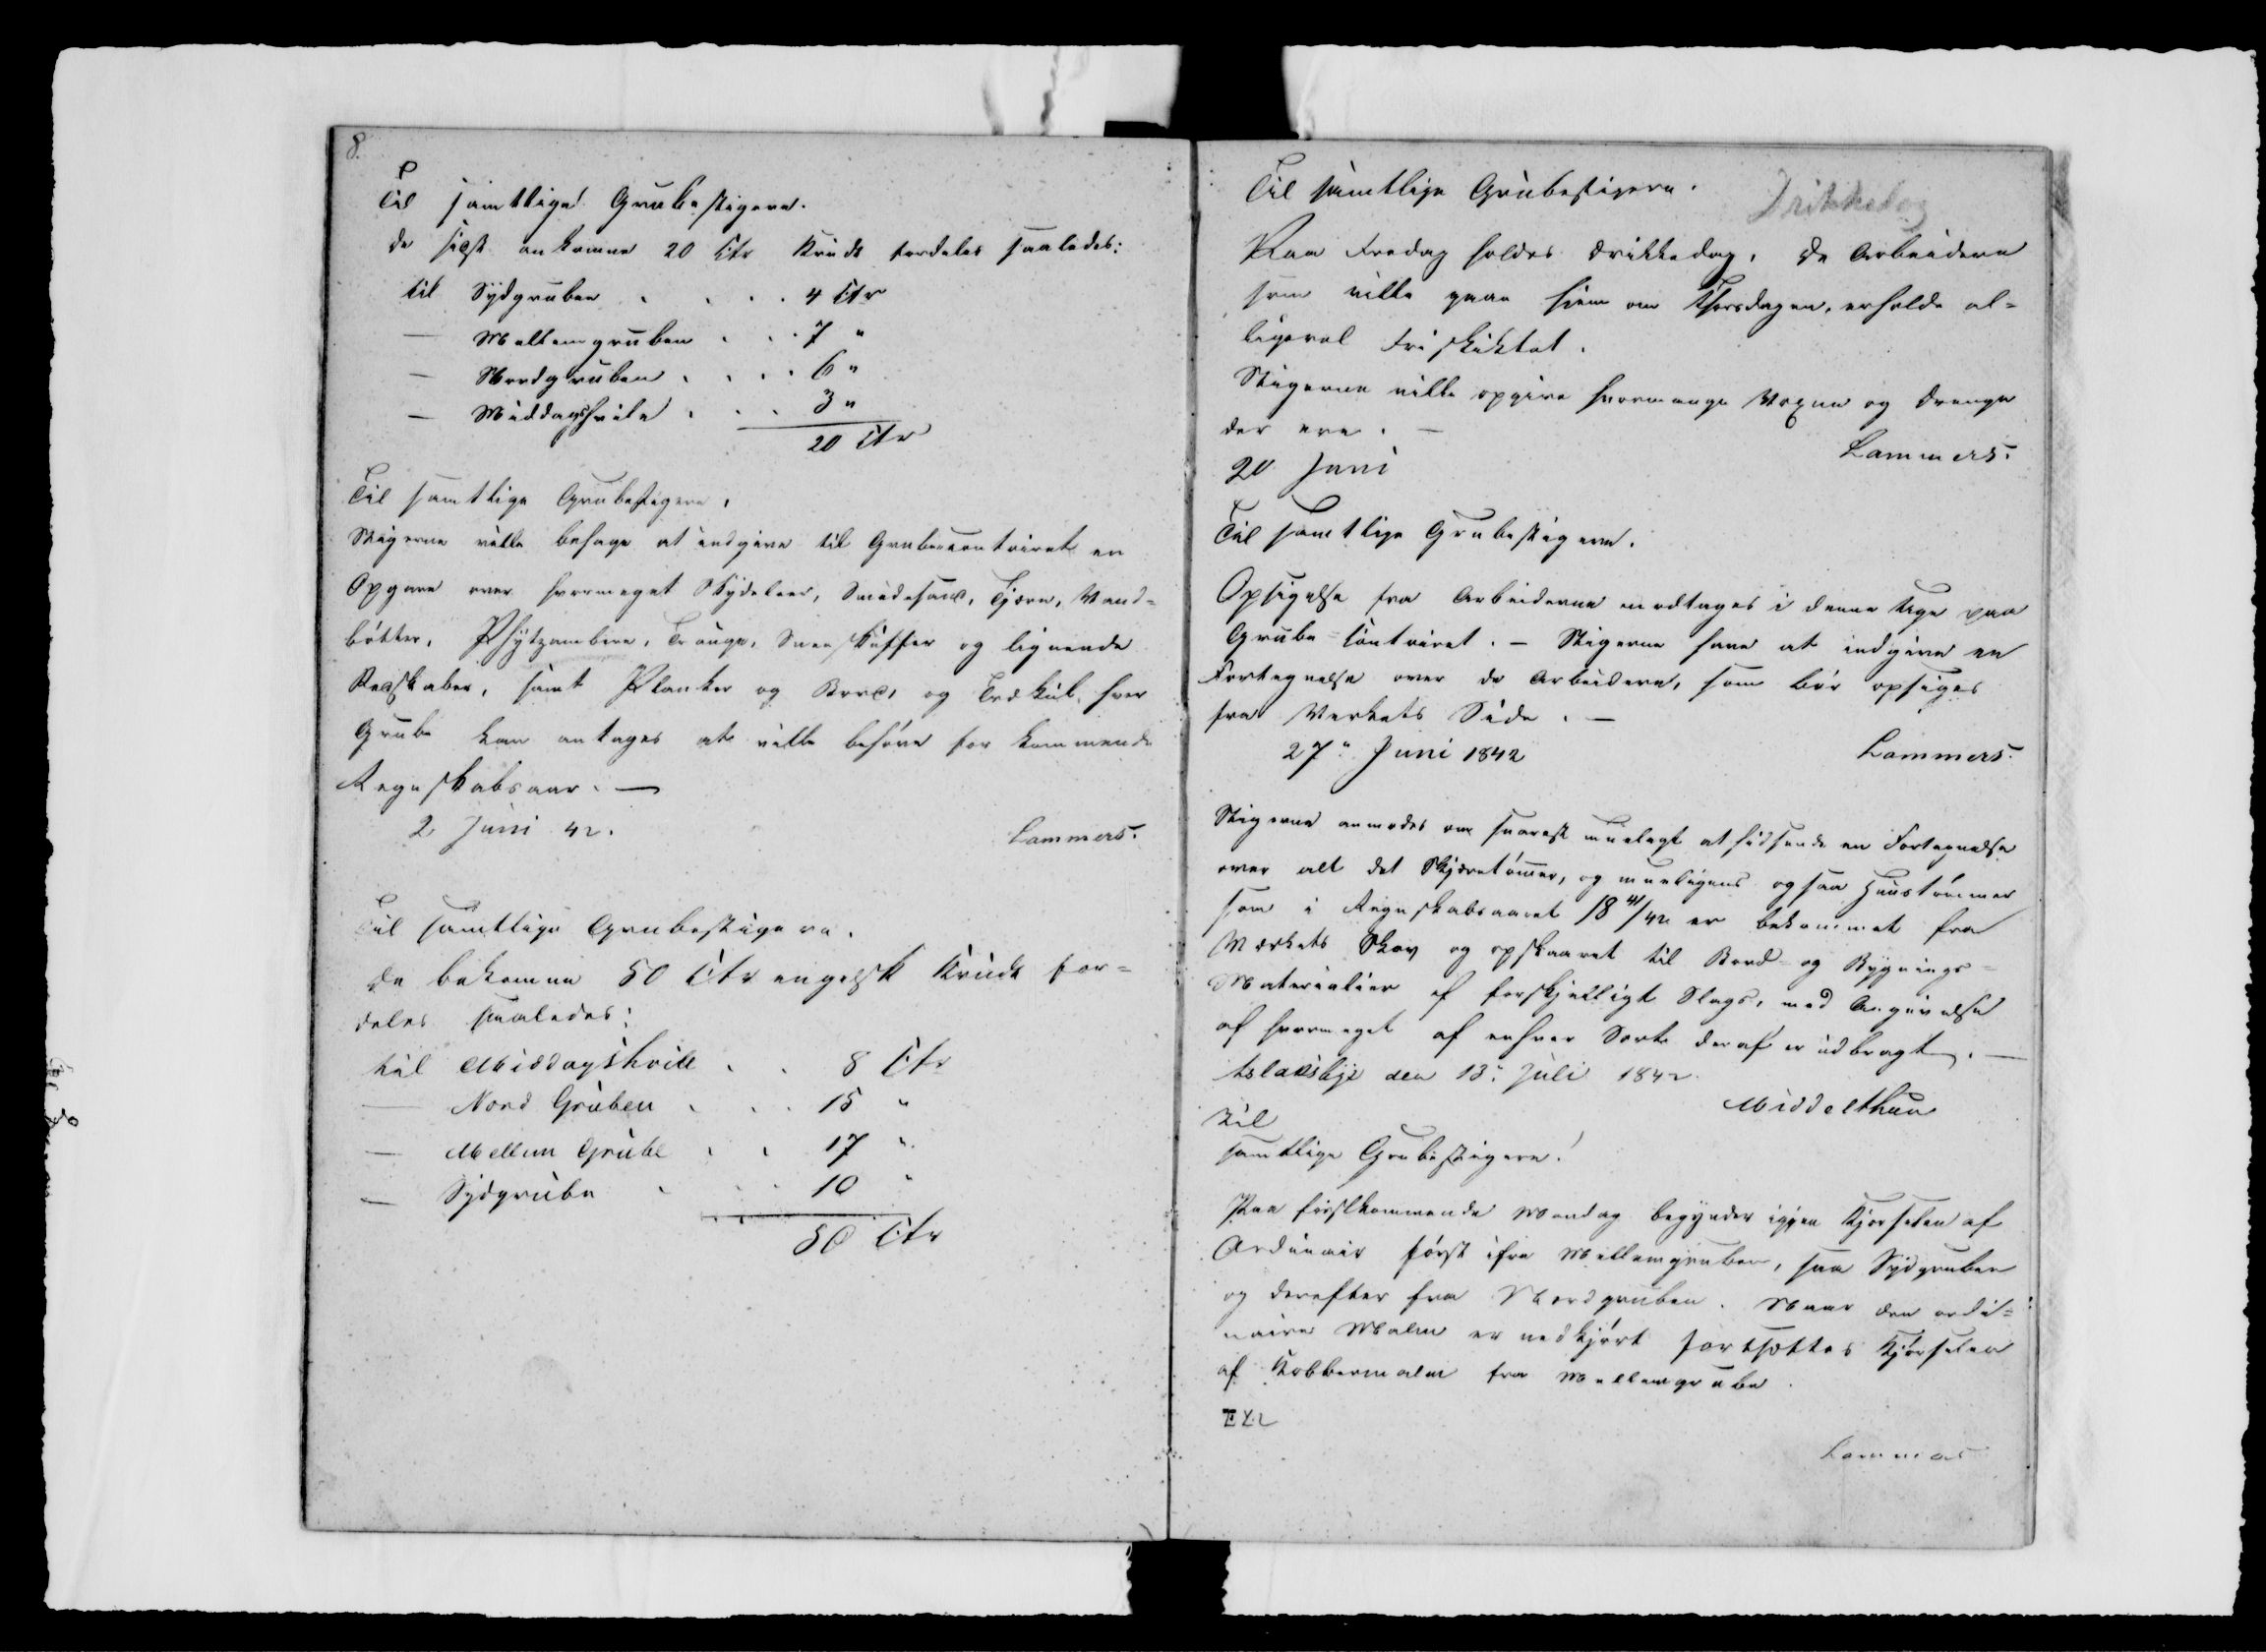 8.
Til samtlige Grubestigere.
De sidst ankomne 20 Ctr Krudt fordeles saaledes:
til Sydgruben . . . . 4 Ctr
— Mellemgruben . . . 7 "
— Nordgruben . . . . 6 "
— Middagshvile . . . 3 "
20 Ctr
Til samtlige Grubestigere,
Stigerne ville behage at indgive til Grubecontoiret en
Opgave over hvormeget Skydeleer, Smedesand, Tjære, Vand-
bøtter, Phytzambere, Trauge, Sneeskuffer og lignende
Redskaber, samt Planker og Bord, og Trækul, hver
Grube kan antages at ville behøve for kommende
Regnskabsaar. —
2 Juni 42.
Lammers.
Til samtlige Grubestigere.
De bekomne 50 Ctr engelsk Krudt for=
deles saaledes:
til Middagshvile . . 8 Ctr
— Nord Gruben . . . 15 "
— Mellem Grube . . 17 "
— Sydgrube . . . 10 "
50 Ctr
Til samtlige Grubestigere.
Drikkedag
Paa Fredag holdes Drikkedag. De Arbeidere
som ville gaae hjem om Thorsdagen, erholde al=
ligevel Friskiktet.
Stigerne ville opgive hvormange Voxne og Drenge
der ere. —
Lammers.
20 Juni
Til samtlige Grubestigere.
Opsigelse fra Arbeiderne modtages i denne Uge paa
Grube=Contoiret. – Stigerne have at indgive en
Fortegnelse over de Arbeidere, som bør opsiges
fra Værkets Side. —
27" Juni 1842
Lammers.
Stigerne anmodes om snarest mueligt at hidsende en Fortegnelse
over alt det Skjæretømmer, og mueligens ogsaa Huustømmer
som i Regnskabsaaret 18 41/42 er bekommet fra
Værkets Skov og opskaaret til Bord- og Bygnings-
Materialier af forskjelligt Slags, med Angivelse
af hvormeget af enhver Sort deraf er udbragt. —
den 13: Juli 1842.
Middelthun
Til
samtlige Grubestigere!
Paa førstkommende Mandag begynder igjen Kjørselen af
Ordinair først ifra Mellemgruben, saa Sydgruben
og derefter fra Nordgruben. Naar den ordi=
naire Malm er nedkjørt fortsættes Kjørselen
af Kobbermalm fra Mellemgrube.
Lammers